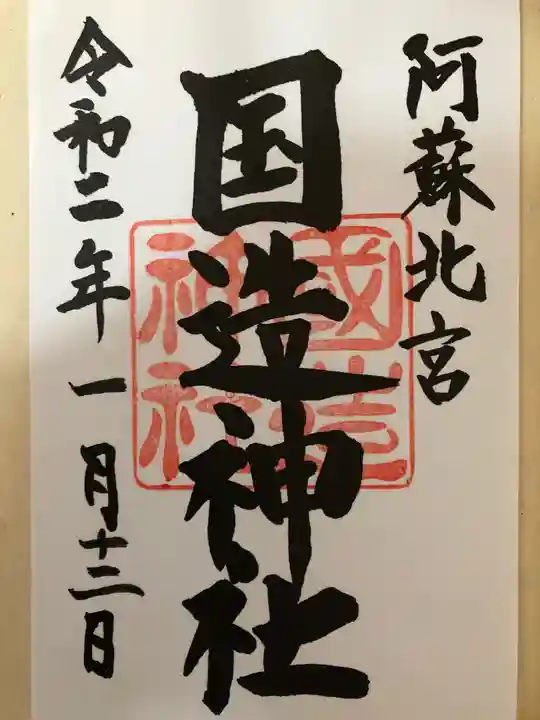 阿蘇北宮
国造神社
令和二年一月十三日
國造
神社